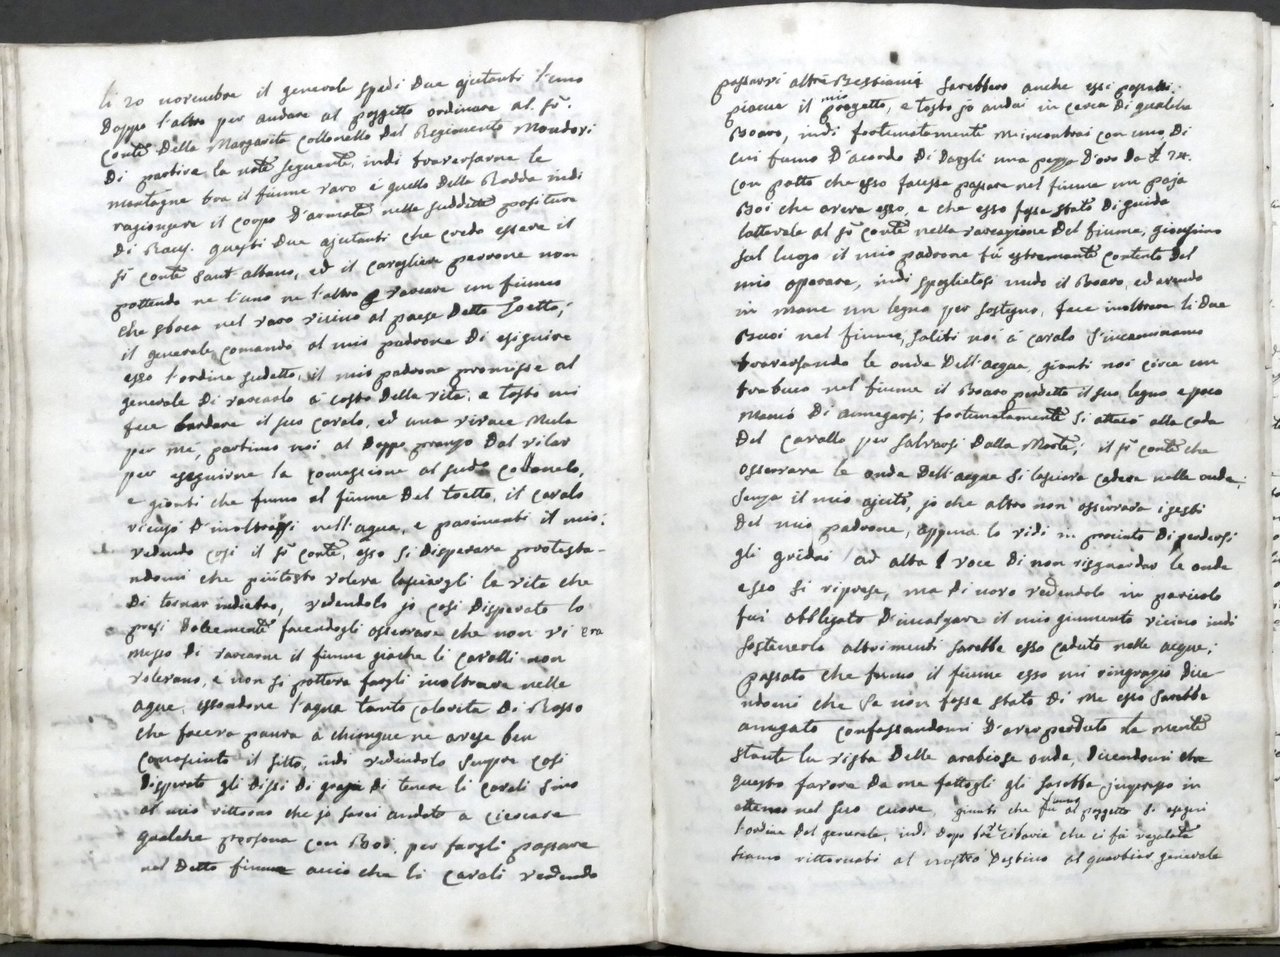 li 20 novembre il generale spedi due ajutanti l'uno
doppo l'altro per andare al poggetto ordinare al Sr.
Conte Della Margarita Collonello Del Regimento Mondovi
Di partire la notte seguente, indi traversarne le
montagne tra il fiume varo é quello della Rodda indi
ragiongere il corpo D'armata nelle suddette positure
Di Raus. questi Due ajutanti che credo essere il
Sr Conte Sant albano, ed il Cavagliere perrone non
pottendo ne l'uno ne l'altro varcare un fiume
che sboca nel varo vicino al paese Detto Toetto,
il generale comando al mio padrone Di esiguire
esso l'ordine sudetto, il mio padrone promisse al
generale Di varcarlo á costo della vita, e tosto mi
fece bardare il suo Cavalo, ed una vivace Mula
per mé, partimo noi al Doppo pranzo Dal vilar
per esseguirne la comessione al sudo Colonelo,
e gionti che fumo al fiume Del toetto, il Cavalo
ricusó D'inoltrarsi nell'aqua, e parimenti il mio:
vedendo cosi il Sr Conte, esso si disperava protesta-
ndomi che piutosto voleva lasciargli la vita che
Di tornar indietro, vedendolo jo cosi disperato lo
presi Dolcemente facendogli osservare che non vi era
mezzo Di varcarne il fiume giache li Cavalli non
volevano, e non si potteva fargli inoltrare nelle
aque, essendone l'aqua tanto colorita Di Rosso
che faceva paura á chiunque ne avese ben
Conosciuto il sitto, indi vedendolo sempre cosi
Disperato gli Dissi Di grazia Di tenere li Cavali sino
al mio rittorno che jo sarei andato a ciercare
qualche persona con Boi, per fargli passare
nel Detto fiume acció che li Cavali vedendo
passarvi altre Bestiami sarebbero anche essi passati.
piacue il mio progetto, e tosto jo andai in cerca Di qualche
Boaro, indi fortunatamente m'incontrai con uno, Di
cui fumo D'acordo Di Dargli una pezza D'oro Da £ 24.
con patto che esso facesse passare nel fiume un paja
Boi che aveva esso, e che esso fosse stato Di guida
latterale al Sr Conte nella varcazione Del fiume, gionssimo
sul luogo il mio padrone fú estremante contento Del
mio operare, indi spogliatosi nudo il Boaro, ed avendo
in mane un legno per sostegno, fece inoltrare li Due
Buoi nel fiume, saliti noi á Cavalo s'incaminamo
traversando le onde Dell'acque, gionti noi circa un
trabuco nel fiume il Boaro perdette il suo legno e poco
mancó Di annegarsi, fortunatamente si attacó alla coda
Del Cavallo per salvarsi Dalla Morte; il Sr Conte che
osservava le onde Dell'acque si lasciava cadere nelle onde,
senza il mio ajuto, jo che altro non osservava i gesti
Del mio padrone, appena lo vidi in procinto Di perdersi
gli gridai ad alta voce Di non risguardar le onde
esso si riprese, ma Di novo vedendolo in pericolo
fui obbligato D'incalzare il mio giumento vicino indi
sostenerlo altrimenti sarebbe esso caduto nelle acque;
passato che fumo il fiume esso mi ringrazió Dice
ndomi che se non fosse stato Di me esso sarebbe
anegato confessandomi D'aver perduto la mente
stante la vista Delle arabiose onde, Dicendomi che
questo favore Da me fattogli gli sarebbe impresso in
etterno nel suo cuore, giunti che fumo al poggetto si eseguì
l'ordine Del generale, indi Dopo la cibaria che ci fú regalata
siamo rittornati al nostro Destino al quartier generale